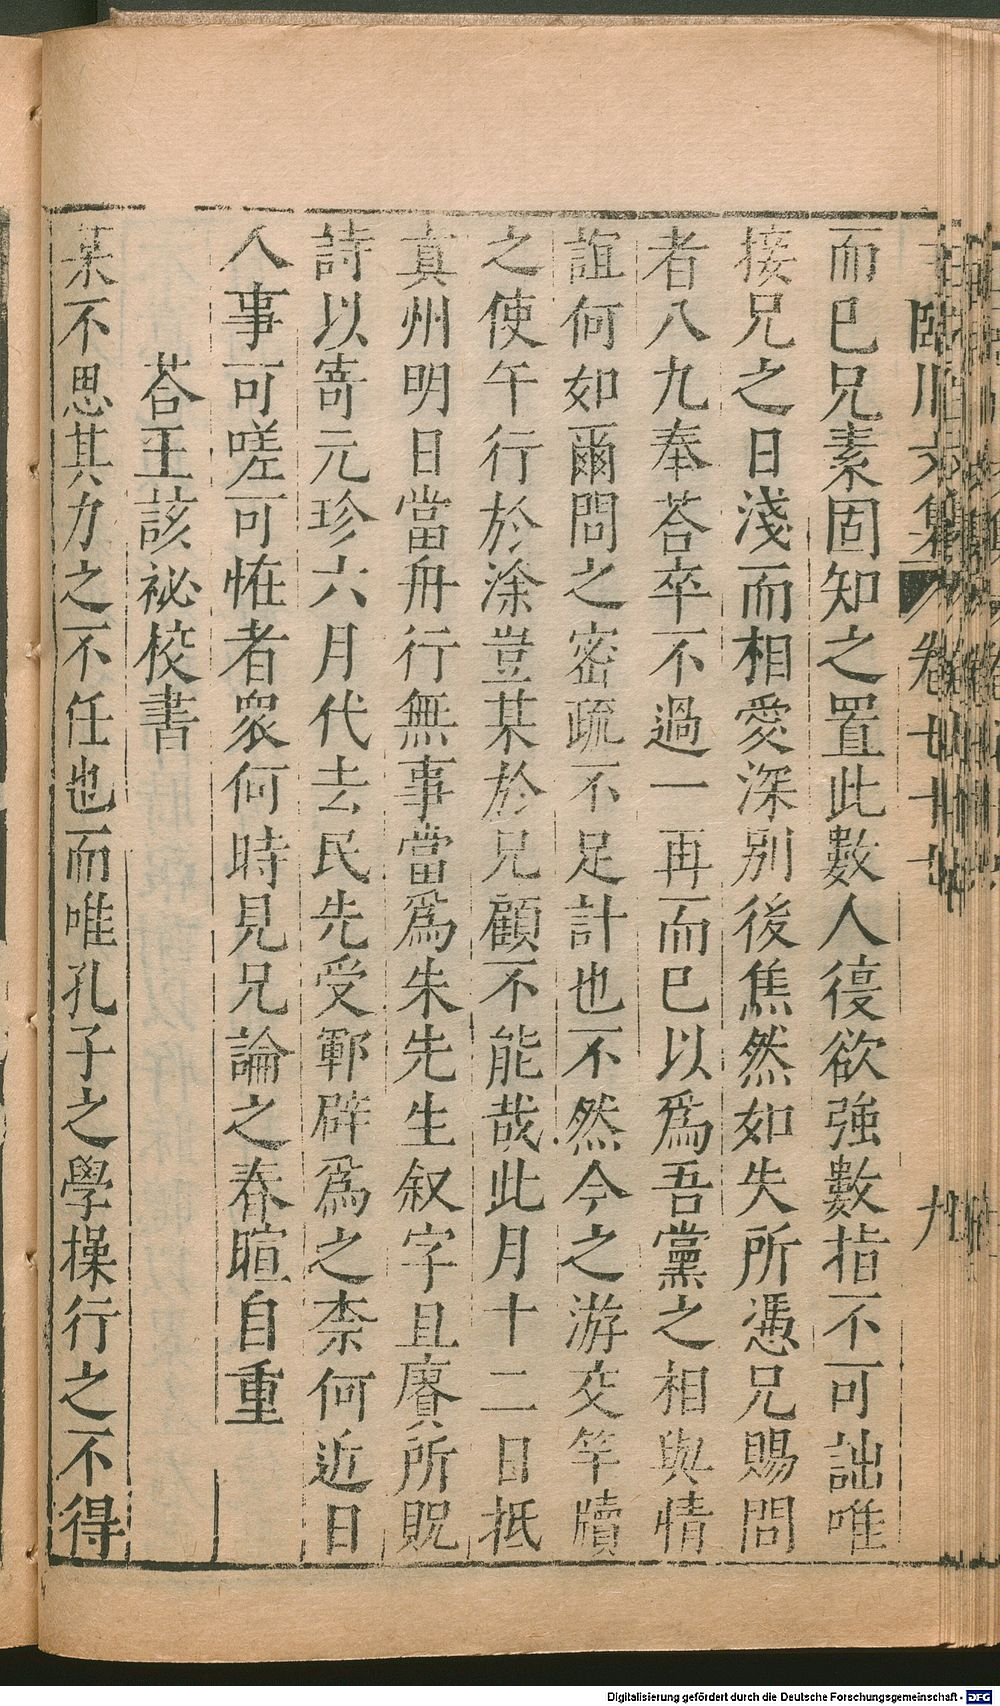 臨川文集 卷七十七 九
而巳兄素固知之置此數人復欲強數指不可詘唯
接兄之日淺而相愛深别後焦然如失所憑兄賜問
者八九奉荅卒不過一再而巳以爲吾黨之相與情
誼何如爾問之密疏不足計也不然今之游交竿牘
之使午行於涂豈某於兄顧不能哉此月十二日抵
真州明日當舟行無事當爲朱先生叙字且賡所貺
詩以寄元珍六月代去民先受鄆辟爲之柰何近日
人事可嗟可恠者衆何時見兄論之春暄自重
荅王該祕校書
某不思其力之不任也而唯孔子之學操行之不得
Digitalisierung gefördert durch die Deutsche Forschungsgemeinschaft - DFG